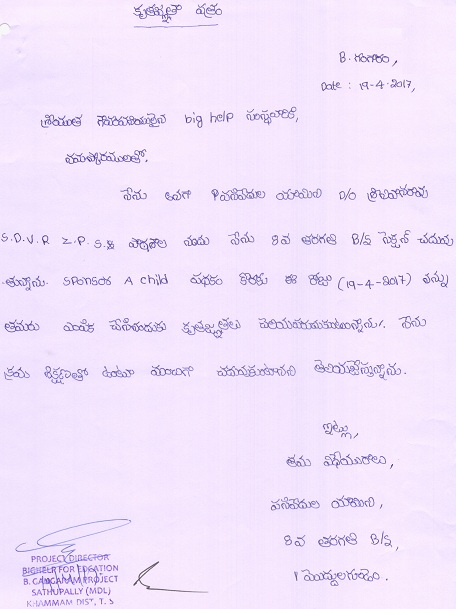 కృతజ్ఞతా పత్రం
B. గంగారం,
Date : 19-4-2017,
శ్రీయుత గౌరవనీయులైన big help సంస్థవారికి,
నమస్కారములతో.
నేను అనగా పసివేముల యామిని D/O శ్రీనివాసరావు
S.D.V.R Z.P.S.S పాఠశాల నందు నేను 8వ తరగతి B/S సెక్షన్ చదువు
తున్నాను. Sponsor A child పథకం కొరకు ఈ రోజు (19-4-2017) నన్ను
తమరు ఎంపిక చేసినందుకు కృతజ్ఞతలు తెలియపరుచుకుంటున్నాను. నేను
క్రమ శిక్షణతో ఉంటూ బాగా చదువుకుంటానని తెలియజేస్తున్నాను.
ఇట్లు,
తమ విధేయురాలు,
పసివేముల యామిని,
8 వ తరగతి B/S,
PROJECT DIRECTOR
BIGHELP FOR EDUATION
B. GANGARAM PROJECT
SATHUPALLY (MDL)
KHAMMAM DIST, T. S